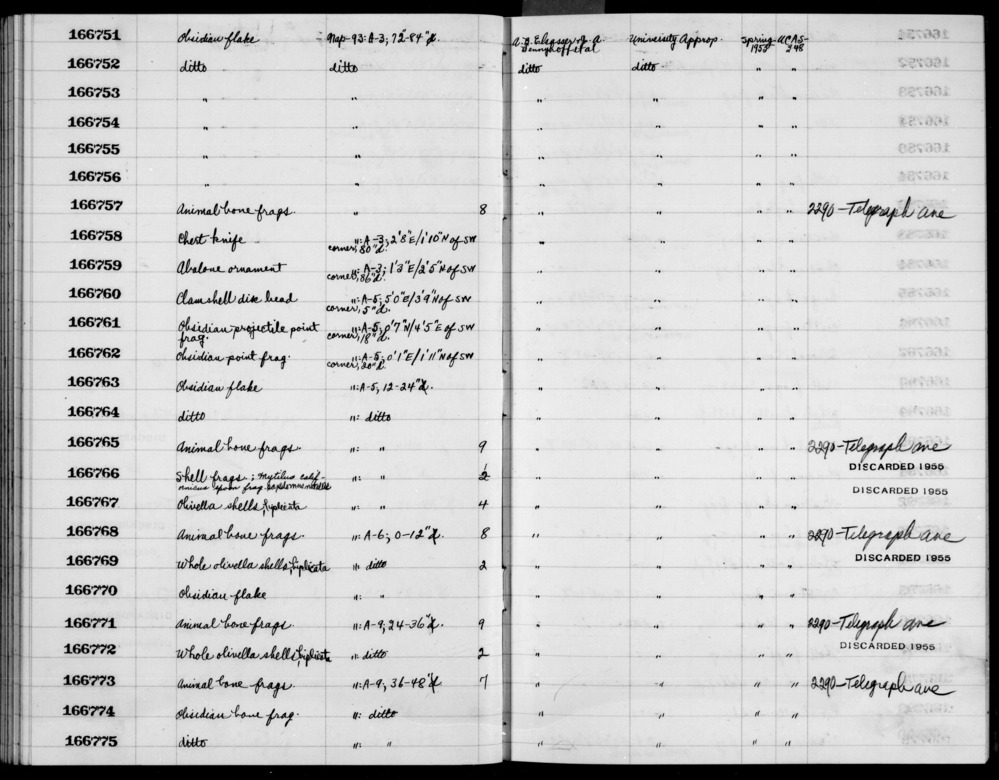 166751 Obsidian flake Nap-93: A-3; 72-84"d. A.B. Elsasser & A. Univeisity Approp. Spring UCAS-
Dennghoff et al 1955 248
166752 ditto ditto ditto ditto " "
166753 " " " " " "
166754 " " " " " "
166755 " " " " " "
166756 " " " " " "
166757 Animal bone frags. " 8 " " " " 2290-Telegraph ave
166758 Chert knife ": A-3; 2'8"E/1'10"N of SW " " " "
corner, 80"d.
166759 Abalone ornament ": A-3; 1'3"E/2'5"N of SW " " " "
corner, 86"d.
166760 Clam shell disk bead ": A-5; 5'0"E/3'9"N of SW " " " "
corner, 5"d.
166761 Obsidian projectile point ": A-5; 0'7"N/4'5"E of SW " " " "
frag. corner, 18"d.
166762 Obsidian point frag. ": A-5; 0'1"E/1'11"N of SW " " " "
corner, 20"d.
166763 Obsidian flake ": A-5, 12-24"d. " " " "
166764 ditto ": ditto " " " "
166765 Animal bone frags. ": " 9 " " " " 2290-Telegraph ave
DISCARDED 1955
166766 Shell frags.; mytilus calif- ": " 2 " " " "
ornianus spoon frag. DISCARDED 1955
166767 Olivella shells, biplicata ": " 4 " " " "
166768 Animal bone frags. ": A-6; 0-12"d. 8 " " " " 2290-Telegraph ave
166769 Whole olivella shells, biplicata ": ditto 2 " " " " DISCARDED 1955
166770 Obsidian flake ": " " " " "
166771 Animal bone frags. ": A-9; 24-36"d. 9 " " " " 2290-Telegraph ave
166772 Whole olivella shells, biplicata ": ditto 2 " " " " DISCARDED 1955
166773 Animal bone frags. ": A-9; 36-48"d 7 " " " " 2290-Telegraph ave
166774 Obsidian bone frag. ": ditto " " " "
166775 ditto ": " " " " "